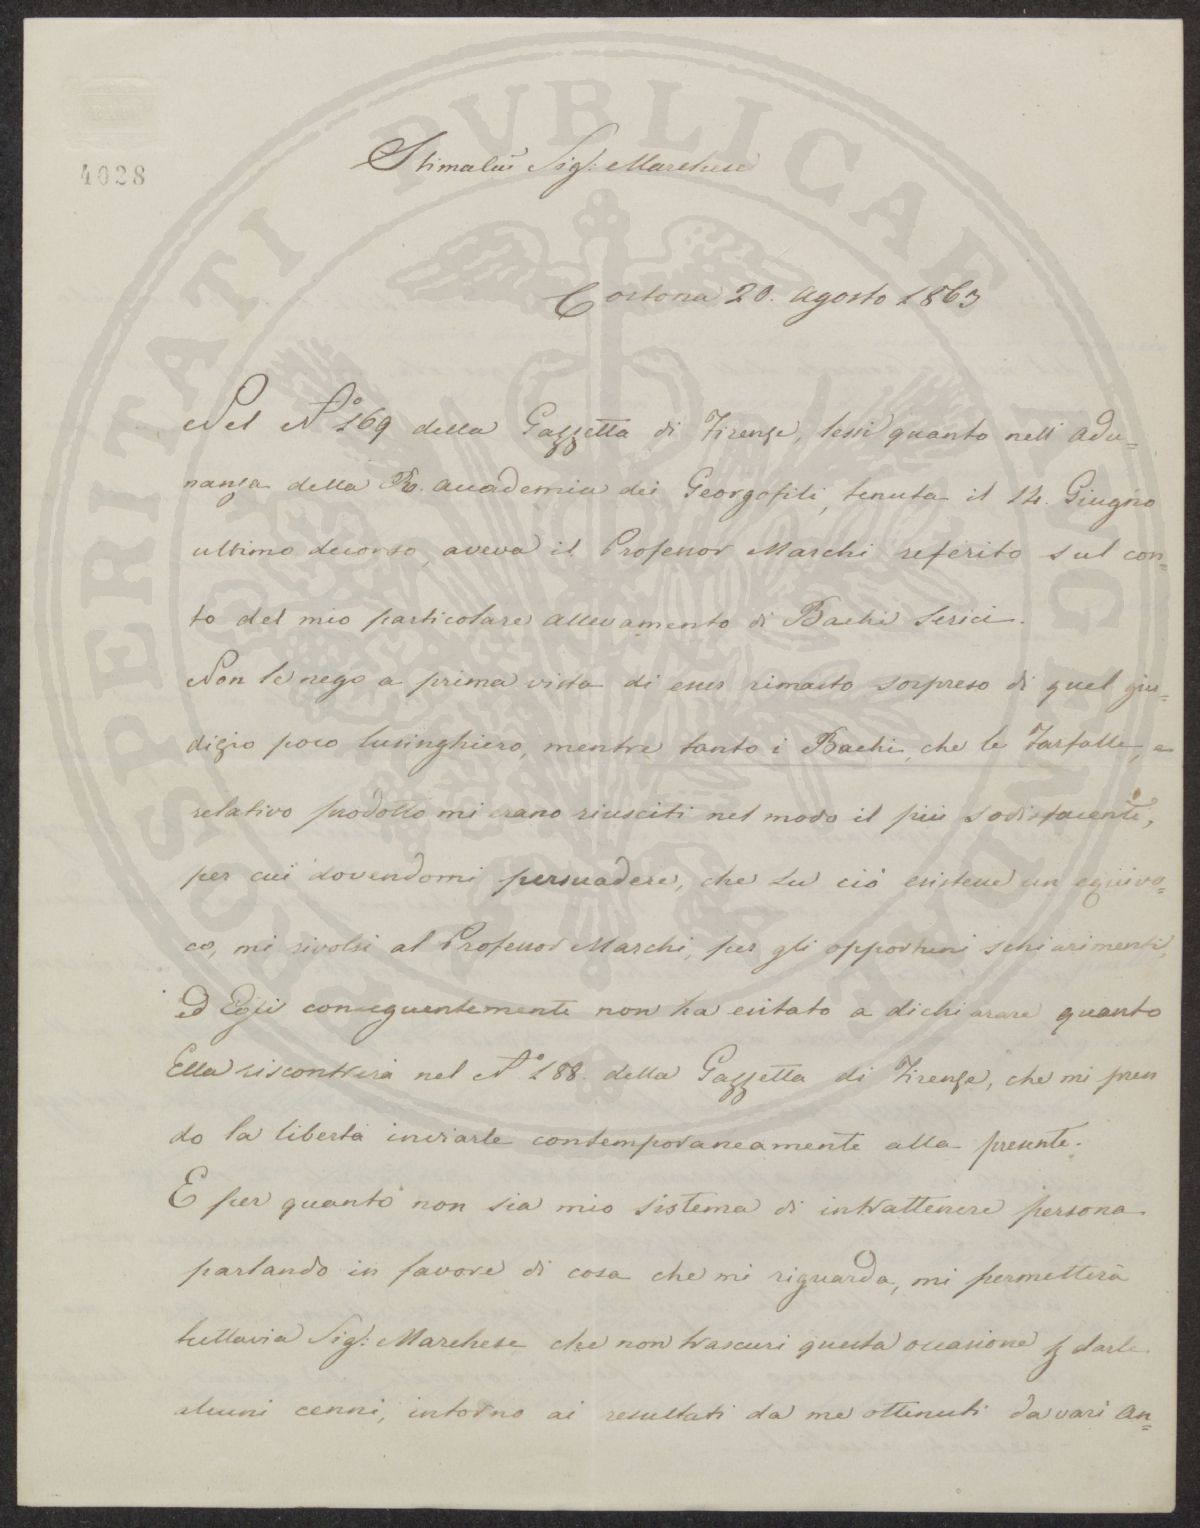 4028
Stimatis Sig: Marchese
Cortona 20. Agosto 1863
Nel N.° 169 della Gazzetta di Firenze, lessi quanto nell'adu=
nanza della R. Accademia dei Georgofili, tenuta il 14. Giugno
ultimo decorso, aveva il Professor Marchi referito sul con=
to del mio particolare allevamento di Bachi Serici.
Non le nego a prima vista di esser rimasto sorpreso di quel giu=
dizio poco lusinghiero, mentre tanto i Bachi, che le Farfalle, e
relativo prodotto mi erano riusciti nel modo il più sodisfacente,
per cui dovendomi persuadere, che su ciò esistesse un equivo=
co, mi rivolsi al Professor Marchi, per gli opportuni schiarimenti,
ed Egli conseguentemente non ha esitato a dichiarare quanto
Ella riscontrerà nel N.° 188. della Gazzetta di Firenze, che mi pren
do la libertà inviarle contemporaneamente alla presente.
E per quanto non sia mio sistema di intrattenere persona
parlando in favore di cosa che mi riguarda, mi permetterà
tuttavia Sig: Marchese che non trascuri questa occasione p darle
alcuni cenni, intorno ai resultati da me ottenuti da vari An=
PROSPERITATI PVBLICAE AVGENDAE